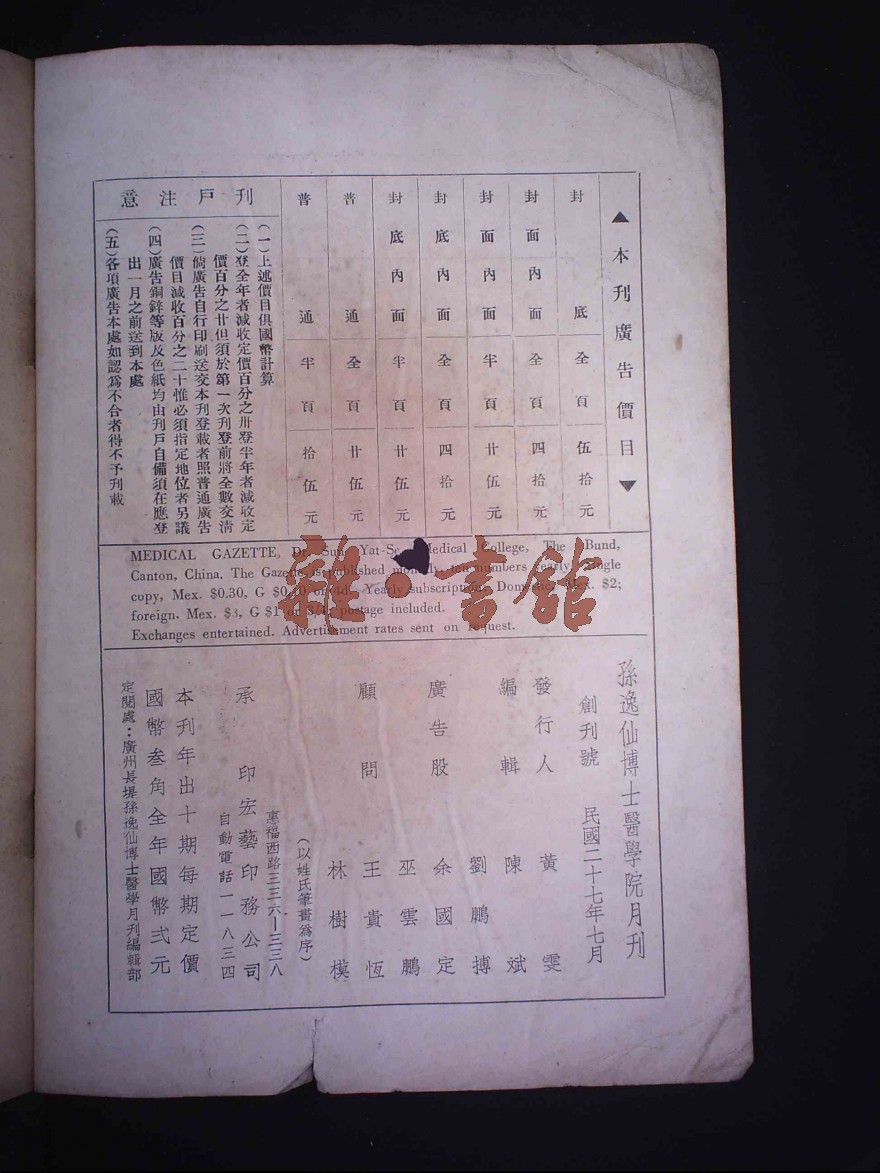 ▲本刊廣告價目▼
封底全頁伍拾元
封面內面全頁四拾元
封面內面半頁廿伍元
封底內面全頁四拾元
封底內面半頁廿伍元
普通全頁廿伍元
普通半頁拾伍元
刊戶注意
(一)上述價目俱國幣計算
(二)登全年者減收定價百分之卅登半年者減收定
價百分之廿但須於第一次刊登前將全數交清
(三)倘廣告自行印刷送交本刊登載者照普通廣告
價目減收百分之二十惟必須指定地位者另議
(四)廣告銅鋅等版及色紙均由刊戶自備須在應登
出一月之前送到本處
(五)各項廣告本處如認爲不合者得不予刊載
MEDICAL GAZETTE, Dr. Sun Yat-Sen Medical College, The Bund,
Canton, China. The Gazette is published monthly, ten numbers yearly. Single
copy, Mex. $0.30, G $0.10 or Yearly subscription: Domestic, Mex. $2;
foreign, Mex. $3, G $1 or postage included.
Exchanges entertained. Advertisment rates sent on request.
孫逸仙博士醫學院月刊
創刊號 民國二十七年七月
發行人 黃雯
編輯 陳斌
劉鵬搏
廣告股 余國定
巫雲鵬
顧問 王貴恆
林樹模
(以姓氏筆畫爲序)
惠福西路三三六—三三八
承印宏藝印務公司
自動電話一一八三四
本刊年出十期每期定價
國幣叁角全年國幣弍元
定閱處：廣州長堤孫逸仙博士醫學月刊編輯部
雜·書館